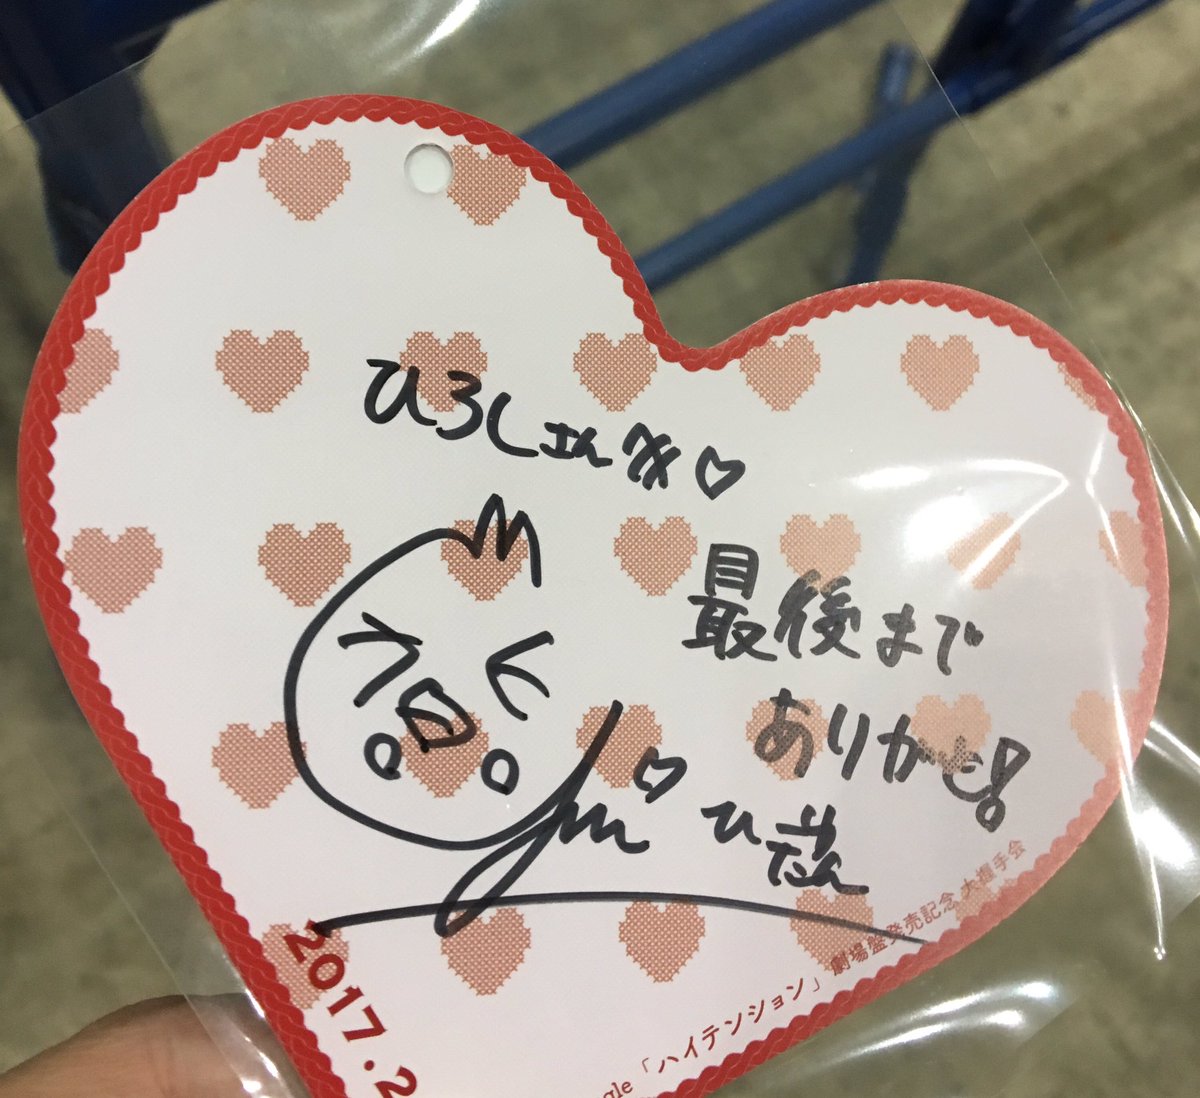 ひろしさんへ♡
最後まで
ありがと!
2017.2
gle「ハイテンション」劇場盤発売記念 大握手会